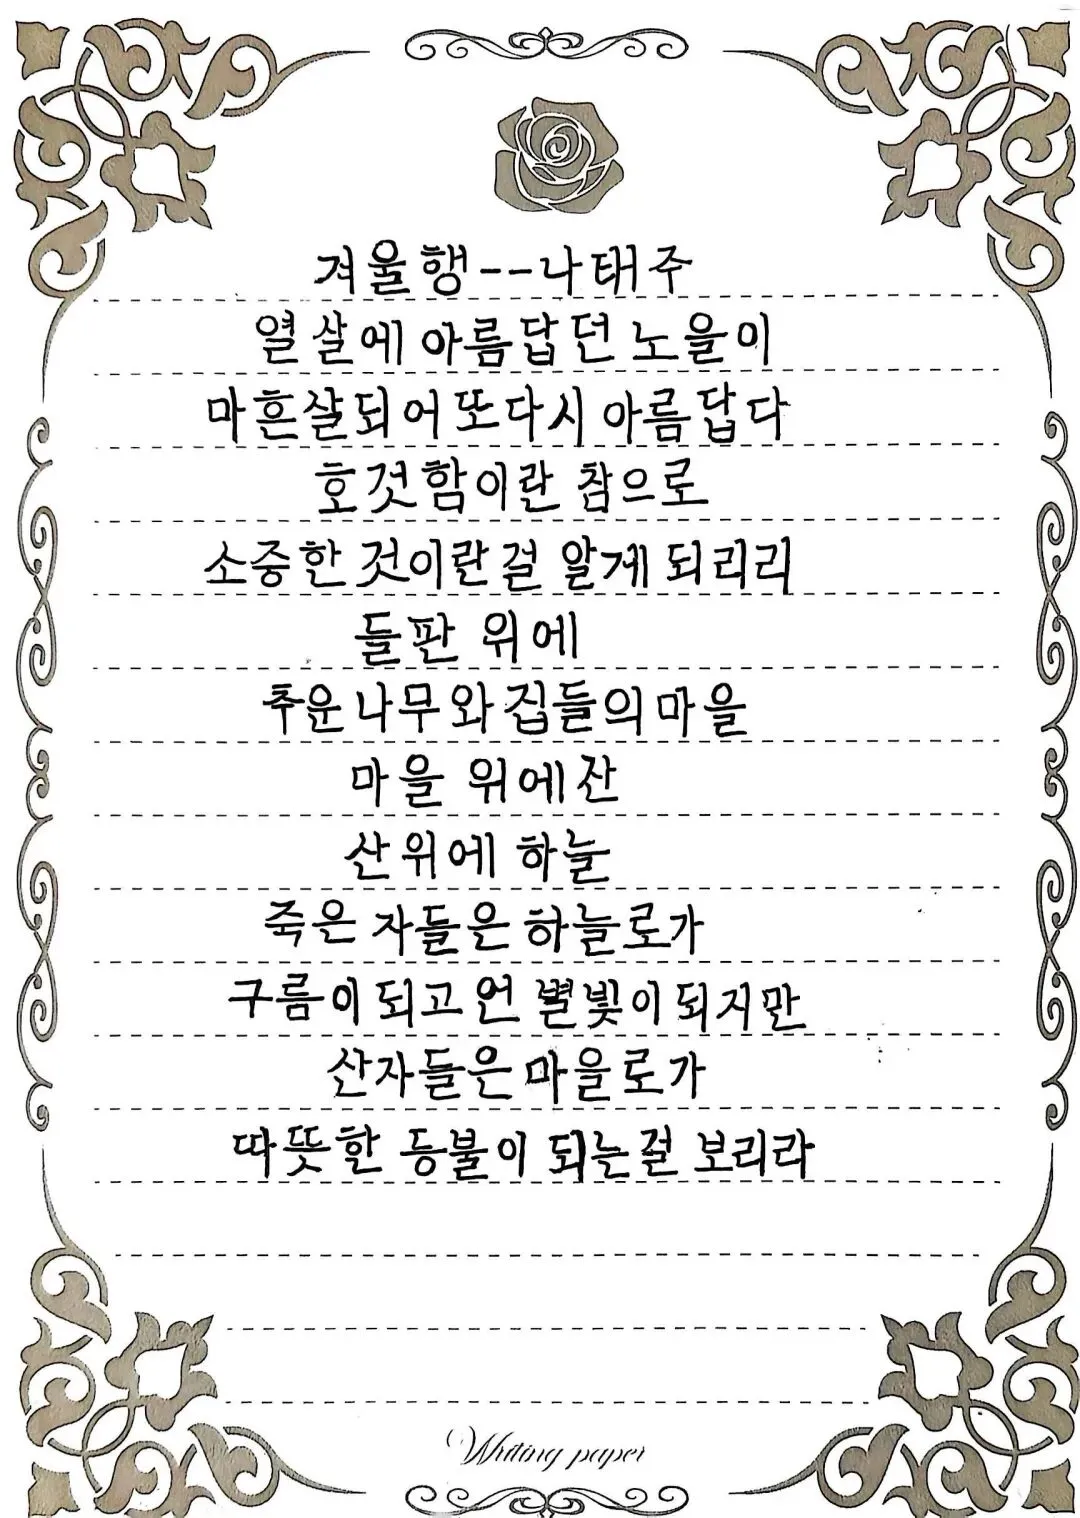 겨울행--나태주
열 살에 아름답던 노을이
마흔살되어또다시 아름답다
호것함이란 참으로
소중한 것이란걸 알게 되리리
들판 위에
추운나무와집들의마을
마을 위에잔
산위에 하늘
죽은 자들은 하늘로가
구름이되고언 별빛이되지만
산자들은마을로가
따뜻한 등불이 되는걸 보리라
Writing paper